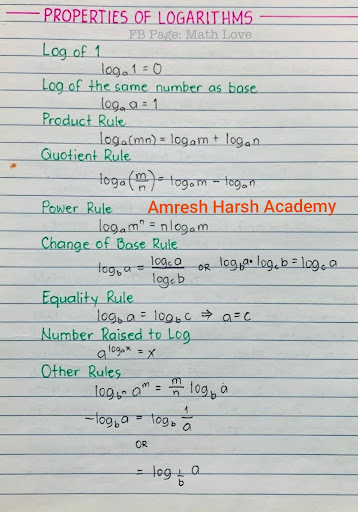 PROPERTIES OF LOGARITHMS
FB Page: Math Love
Log of 1
logₐ1 = 0
Log of the same number as base
logₐa = 1
Product Rule
logₐ(mn) = logₐm + logₐn
Quotient Rule
logₐ(m/n) = logₐm − logₐn
Power Rule
Amresh Harsh Academy
logₐmⁿ = nlogₐm
Change of Base Rule
log_b a = log_c a / log_c b OR log_b a • log_c b = log_c a
Equality Rule
log_b a = log_b c ⇒ a = c
Number Raised to Log
a^(logₐx) = x
Other Rules
log_(bⁿ) a^m = m/n log_b a
−log_b a = log_b 1/a
OR
= log_(1/b) a